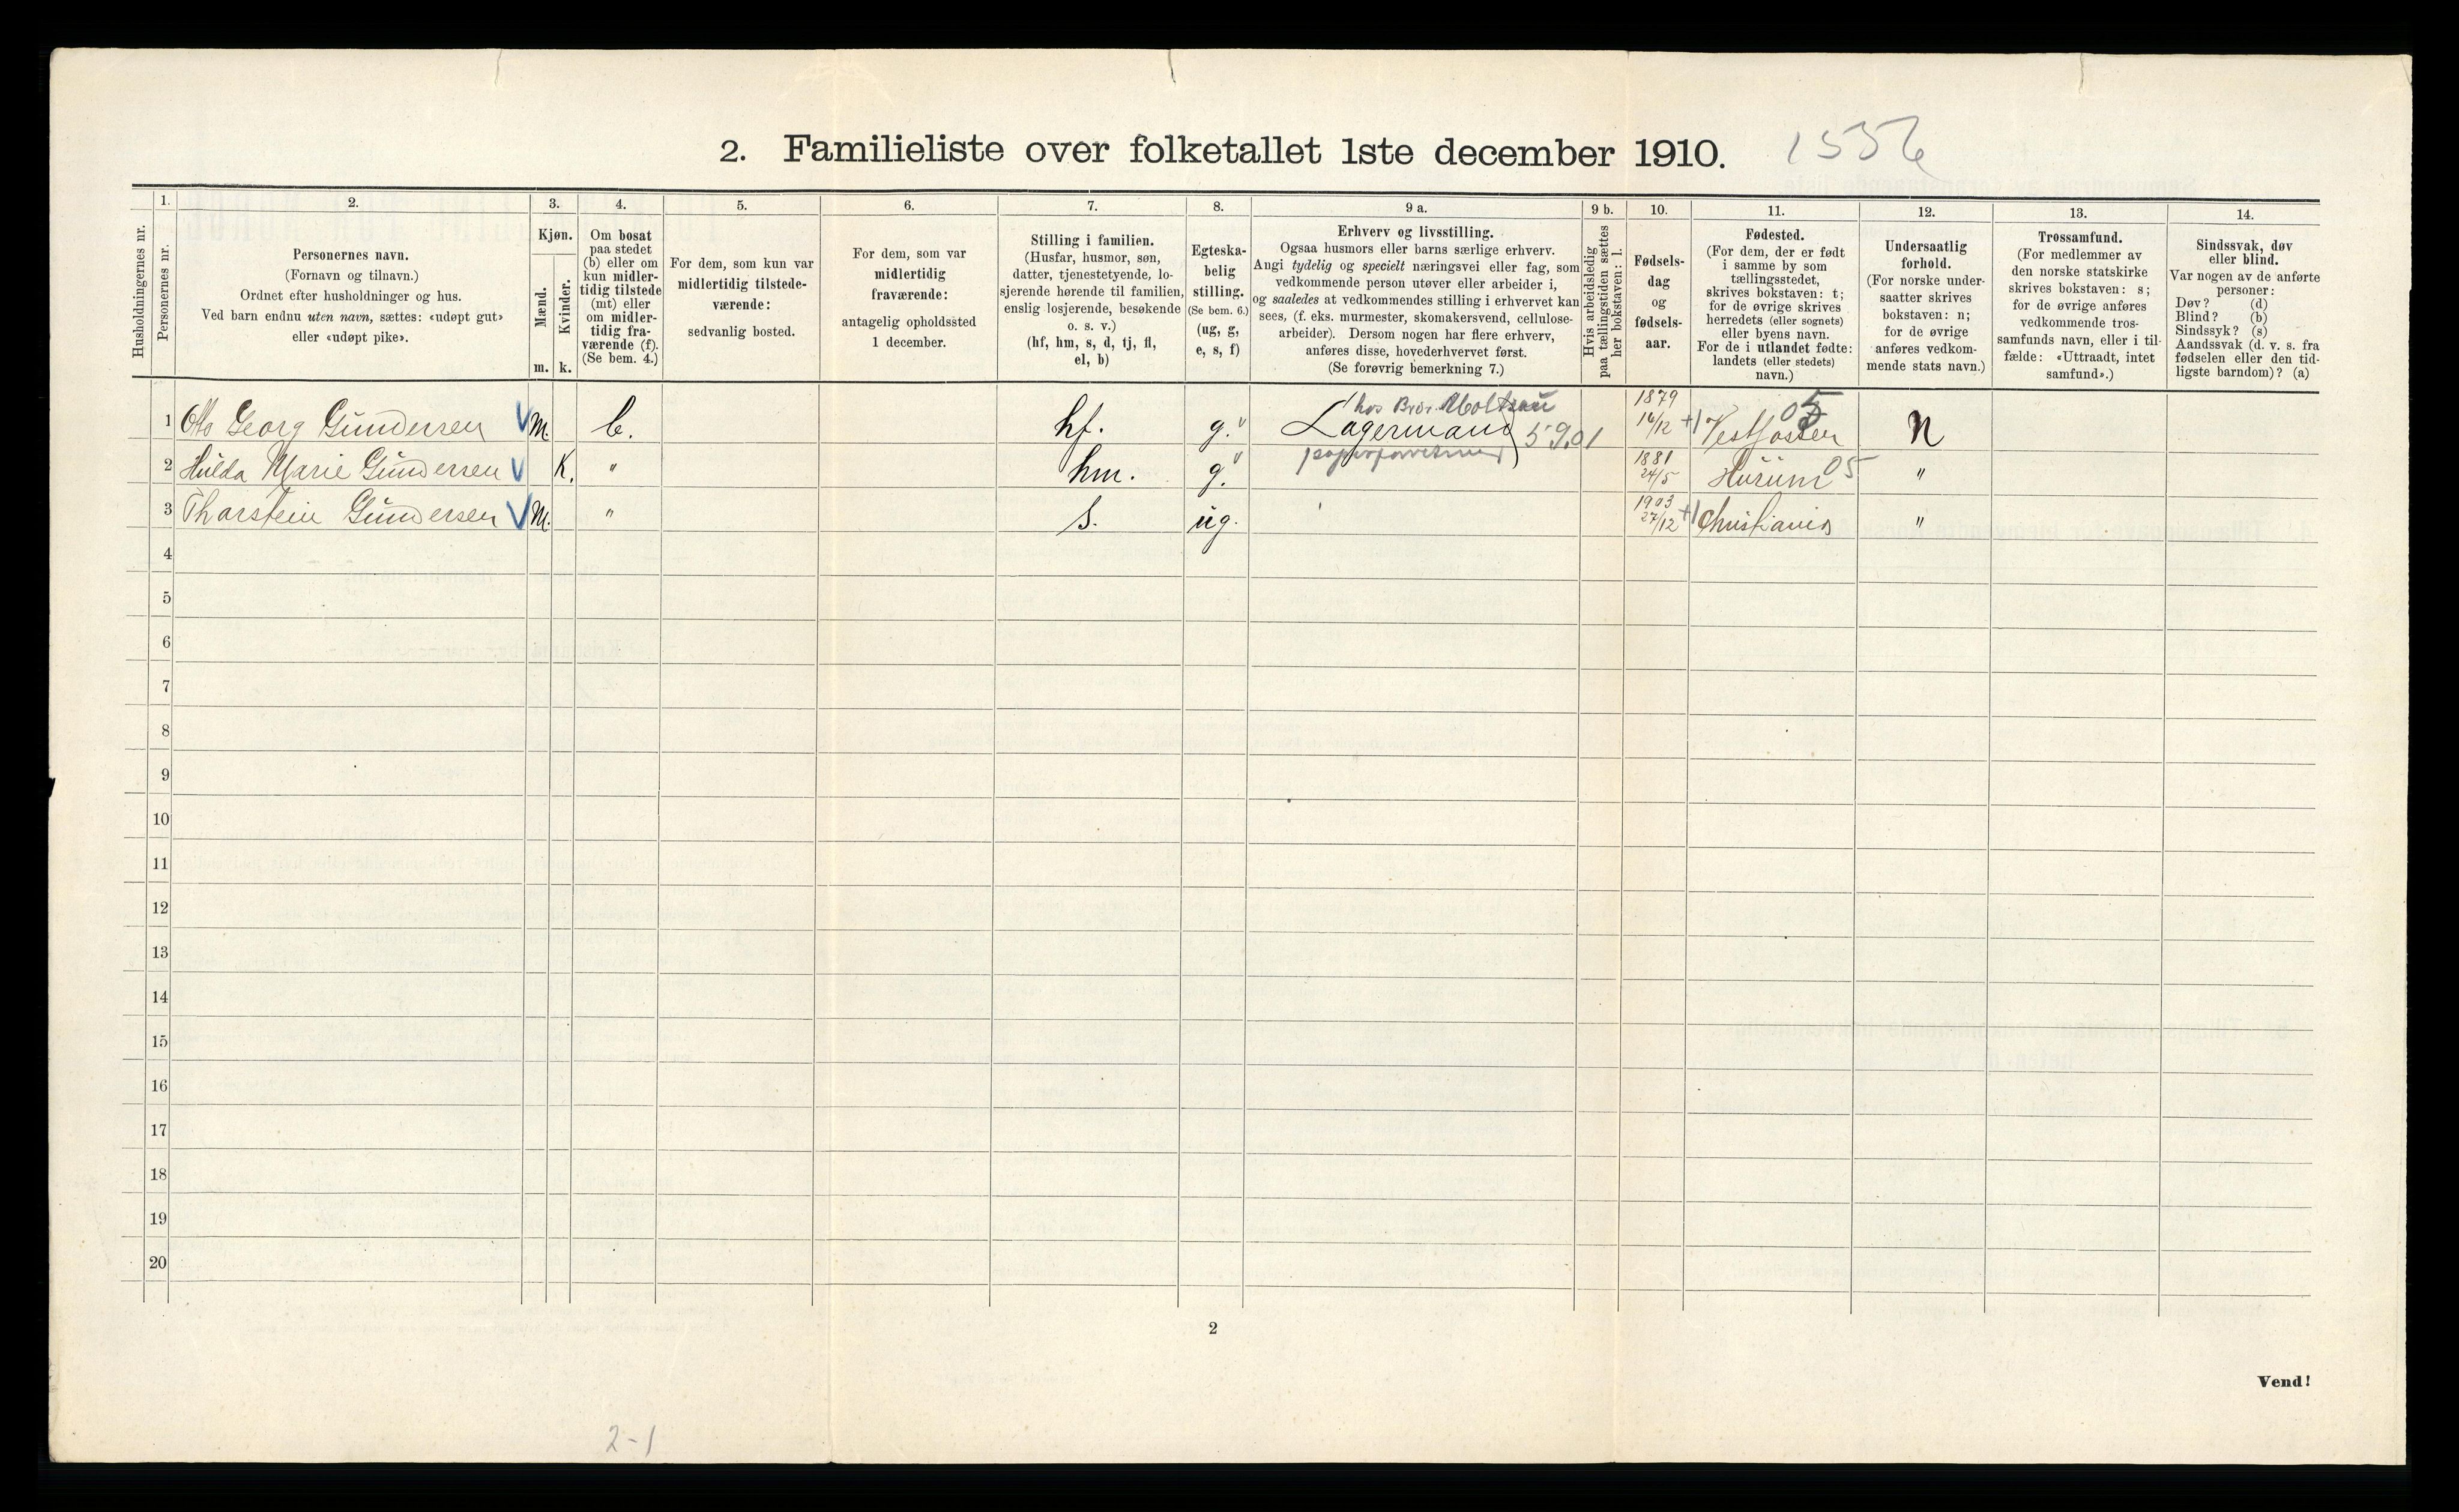 2. Familieliste over folketallet 1ste december 1910. 1556
Husholdningernes nr.
1. Personernes nr.
2.
Personernes navn.
(Fornavn og tilnavn.)
Ordnet efter husholdninger og hus.
Ved barn endnu uten navn, sættes: «udøpt gut»
eller «udøpt pike».
3.
Kjøn.
Mænd. Kvinder.
m. k.
4.
Om bosat
paa stedet
(b) eller om
kun midler-
tidig tilstede
(mt) eller
om midler-
tidig fra-
værende (f).
(Se bem. 4.)
5.
For dem, som kun var
midlertidig tilstede-
værende:
sedvanlig bosted.
6.
For dem, som var
midlertidig
fraværende:
antagelig opholdssted
1 december.
7.
Stilling i familien.
(Husfar, husmor, søn,
datter, tjenestetyende, lo-
sjerende hørende til familien,
enslig losjerende, besøkende
o. s. v.)
(hf, hm, s, d, tj, fl,
el, b)
8.
Egteska-
belig
stilling.
(Se bem. 6.)
(ug, g,
e, s, f)
9 a.
Erhverv og livsstilling.
Ogsaa husmors eller barns særlige erhverv.
Angi tydelig og specielt næringsvei eller fag, som
vedkommende person utøver eller arbeider i,
og saaledes at vedkommendes stilling i erhvervet kan
sees, (f. eks. murmester, skomakersvend, cellulose-
arbeider). Dersom nogen har flere erhverv,
anføres disse, hovederhvervet først.
(Se forøvrig bemerkning 7.)
9 b.
Hvis arbeidsledig
paa tællingstiden sættes
her bokstaven: l.
10.
Fødsels-
dag
og
fødsels-
aar.
11.
Fødested.
(For dem, der er født
i samme by som
tællingsstedet,
skrives bokstaven: t;
for de øvrige skrives
herredets (eller sognets)
eller byens navn.
For de i utlandet fødte:
landets (eller stedets)
navn.)
12.
Undersaatlig
forhold.
(For norske under-
saatter skrives
bokstaven: n;
for de øvrige
anføres vedkom-
mende stats navn.)
13.
Trossamfund.
(For medlemmer av
den norske statskirke
skrives bokstaven: s;
for de øvrige anføres
vedkommende tros-
samfunds navn, eller i til-
fælde: «Uttraadt, intet
samfund».)
14.
Sindssvak, døv
eller blind.
Var nogen av de anførte
personer:
Døv? (d)
Blind? (b)
Sindssyk? (s)
Aandssvak (d. v. s. fra
fødselen eller den tid-
ligste barndom)? (a)
1 Otto Georg Gundersen M. b. hf. g. hos Brdr. Lagermand 5901 1879 16/12 +1 Vestfossen 05 n
2 Hulda Marie Gundersen K. " hm. g. 1881 24/5 Hurum 05 "
3 Tharstein Gundersen M. " s. ug. 1903 27/12 +1 Christiania "
4
5
6
7
8
9
10
11
12
13
14
15
16
17
18
19
20
2
Vend!
2-1